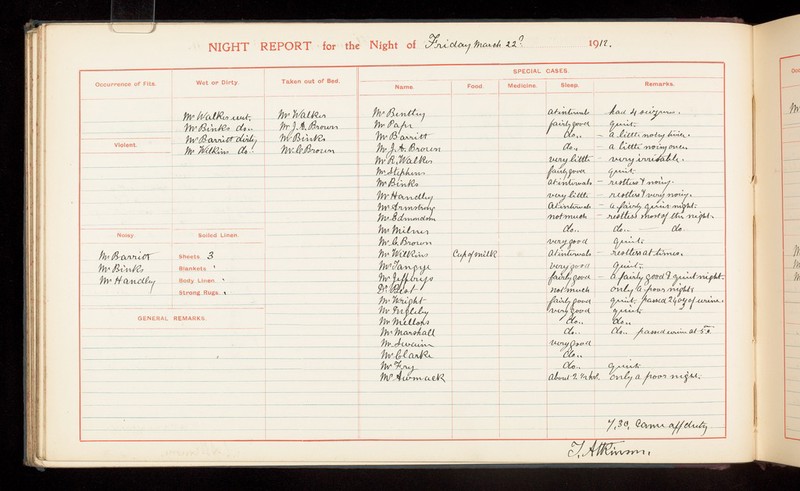 NIGHT REPORT for the Night of Friday March 22ⁿᵈ 1912.
SPECIAL CASES.
Occurrence of Fits. Wet or Dirty. Taken out of Bed. Name. Food. Medicine. Sleep. Remarks.
Mr Walker wet. Mr Walker Mr Bentley at intervals had 4 seizures.
Mr Binks do.. Mr J. A. Brown Mr Papr fairly good quiet.
Mr Barriott dirty Mr Binks Mr Barriott do.. - a little noisy
Violent.
Mr Wilkins do. Mr C. Brown Mr J. A. Brown do.. - a little noisy once.
Mr R. Walker very little - very irritable.
Mr Stephens fairly good quiet.
Mr Binks at intervals - restless & noisy.
Mr Handley very little - restless & very noisy.
Mr Armstrong At intervals - a fairly quiet night.
Mr Edmondson not much - restless most of the night.
Noisy. Soiled Linen.
Mr Milner do.. do.. do
Mr C. Brown very good quiet.
Mr Barriott Sheets 3 Mr Wilkins Cup of milk At intervals - restless at times.
Mr Binks Blankets " Mr Tangye very good quiet.
Mr Handley Body Linen " Mr Jefferys fairly good - a fairly good & quiet night.
Strong Rugs " Dr Best not much only a poor night.
Mr Wright fairly good quiet. Passed 24 oz of urine.
Mr Ingleby very good quiet
GENERAL REMARKS.
Mr Mellors do.. do..
Mr Marshall do.. do.. passed urine at 5
Mr Swain very good
Mr Clarke do..
Mr Fry do.. quiet
Mr Womack About 2 ½ hrs. only a poor night.
7,30, Came off duty
T. Atkinson.